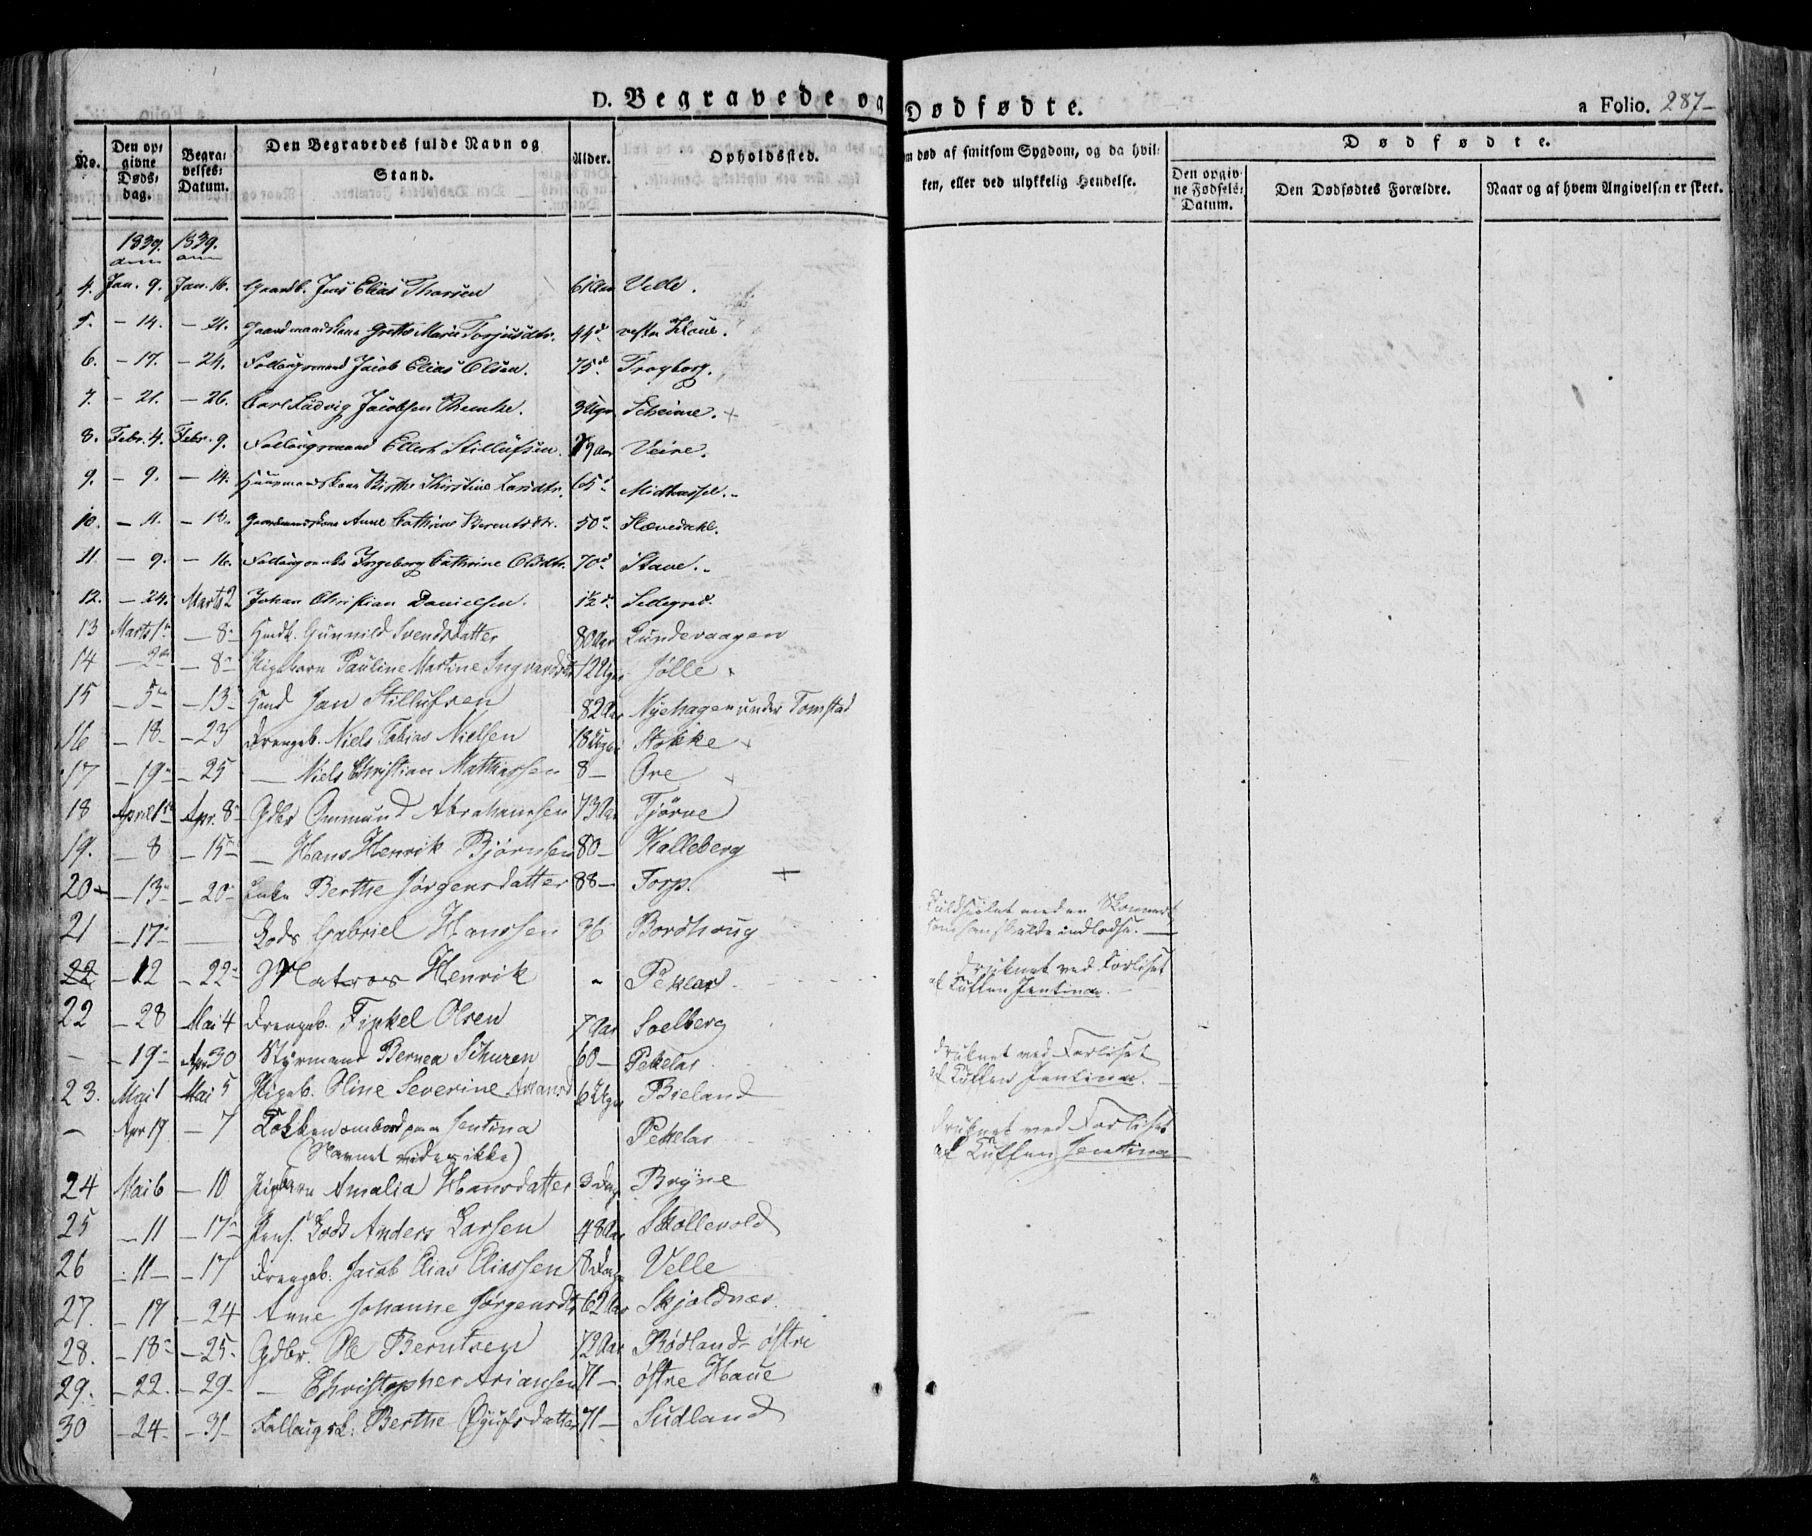 D. Begravede og Dødfødte. a Folio. 287-
No. Den opgivne Dødsdag. Begravelses Datum. Den Begravedes fulde Navn og Stand. Alder. Opholdssted. Om død af smitsom Sygdom, og da hvilken, eller ved ulykkelig Hendelse. Dødfødte. Den opgivne Fødsels Datum. Den Dødfødtes Forældre. Naar og af hvem Angivelsen er skeet.
1839. 1839.
4. Jan. 9. Jan. 16. Gaardb. Jens Elias Thorsen 61 Aar Velle.
5. - 14. - 21. Gaardmandskone Grethe Marie Torjusdtr. 44 d. vestre Haue.
6. - 17. - 24. Follaugsmand Jacob Elias Olsen. 75 d. Trogborg.
7. - 21. - 26. Carl Ludvig Jacobsen 3 Uger Scheime. +
8. Febr. 4. Febr. 9. Follaugsmand Ellert Stillufsen. 79 Aar Veire.
9. - 9. - 14. Huusmandskone Birthe Kirstine Larsdtr. 65 d Midhassel.
10. - 11. - 18. Gaardmandskone Anne Cathrine Berentsdtr. 50 d Slævedahl.
11. - 9. - 16. Ingeborg Cathrine Olsdtr. 70 d. Stave.
12. - 24. Marts 2 Johan Christian Danielsen. 1½ d.
13 Marts 1 - 8 Gunnild Svendsdatter 80 Aar Lundevaagen
14 - 2 - 8 Pigebarn Pauline Martine Ingvarsdtr 12 Uger Jølle
15 - 5 - 13 Jan Stillufsen 82 Aar Nyehagen under Tomstad
16 - 18 - 23 Drengeb. Niels Tobias Nielsen 18 Uger Stokke
17 - 19 - 25 - Niels Christian Mathiassen 8 - Ore
18 April 1 Apr. 8 Gdbr Ommund Abrahamsen 73 Aar Tjørve
19. - 8 - 15 - Hans Henrik Bjørnsen 80 - Kalleberg
20 - 13 - 20 Enke Berthe Jørgensdatter 88 - Torp. +
21 - 17 - Lods Gabriel Hanssen 36 Bordhoug Kuldseilet med en
22 - 12 - 22 Matros Henrik " Pekelas druknet ved Forliset
af Kuffen Jentina.
22 - 28 Mai 4 Drengeb. Tinkel Olsen 7 Aar Soelberg
- - 19 Apr 30 Styrmand Bernea Schuren 60 - Pekelas druknet ved Forliset
af Kuffen Jentina.
23. Mai 1 Mai 5 Pigeb. Oline Severine 6 Uger Bieland
- Apr 19 - 7 Kokken ombord paa Jentina Pekelas druknet ved Forliset
(Navnet vides ikke) af Kuffen Jentina
24 Mai 6 - 10 Pigebarn Amalia Hansdatter 3 Dage Bryne
25 - 11 - 17 Lods Anders Larsen 48 Aar Skollevold
26 - 11 - 17 Drengeb. Jacob Elias Eliassen 8 Dage Velle
27. - 17 - 24 Anne Johanne Jørgensdtr 62 Aar Skjoldnæs.
28. - 18 - 25 Gdbr. Ole Berntsen 72 Aar Rødland østre
29. - 22. - 29 - Christopher Ariansen 71 - østre Haue
30 - 24 - 31 Follaugsk. Berthe Gjufsdatter 71 - Sudland